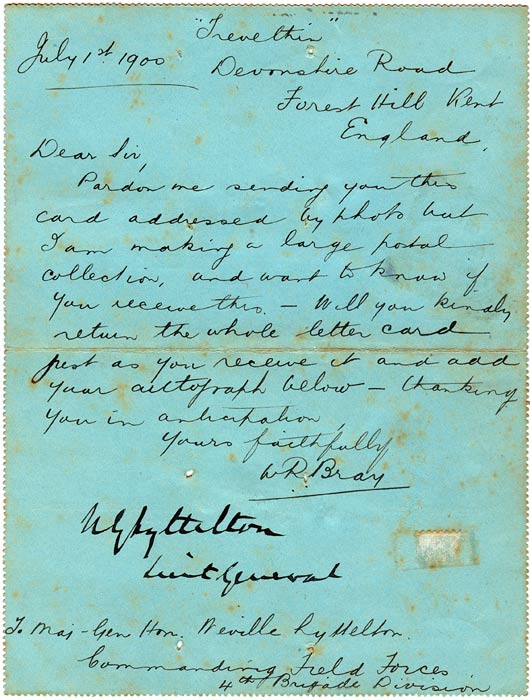 "Trevethin"
July 1st 1900
Devonshire Road
Forest Hill Kent
England.
Dear Sir,
Pardon me sending you this
card addressed by photo but
I am making a large postal
collection, and want to know if
you receive this. – Will you kindly
return the whole letter card
just as you receive it and add
your autograph below – thanking
you in anticipation,
Yours faithfully
W R Bray
N G Lyttelton
Lieut General
To Maj-Gen Hon. Neville Lyttelton.
Commanding Field Forces
4th Brigade Division